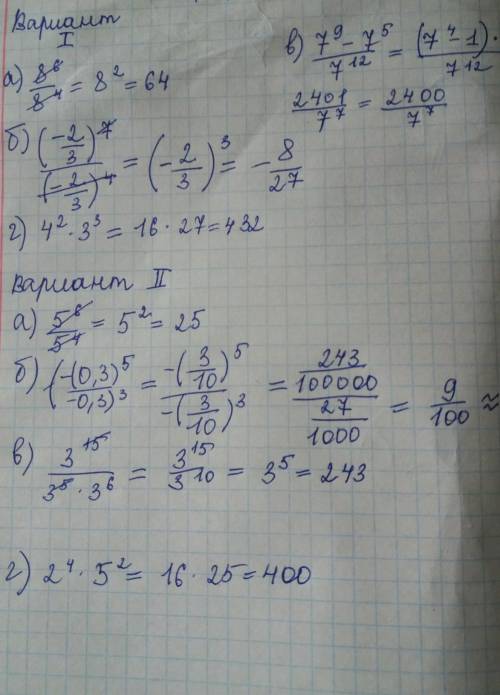 Вариант
I
а) 8⁶/8⁴ = 8² = 64
в) (7⁹ − 7⁵)/7¹² = (7⁴ − 1)·/7¹²
2401/7⁷ = 2400/7⁷
б) (−2/3)⁷/(−2/3)⁴ = (−2/3)³ = −8/27
г) 4² · 3³ = 16 · 27 = 432
Вариант II
а) 5⁶/5⁴ = 5² = 25
б) (−(0,3)⁵/−0,3)³ = −(3/10)⁵/−(3/10)³ = 243/100000/27/1000 = 9/100 ≈
в) 3¹⁵/3⁵ · 3⁶ = 3¹⁵/3¹⁰ = 3⁵ = 243
г) 2⁴ · 5² = 16 · 25 = 400